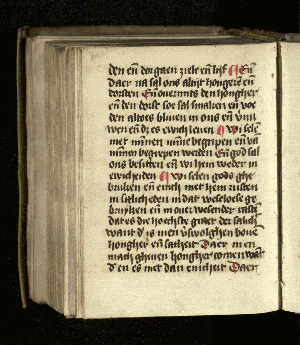 den en̄ dorgaen ziele en̄ lijf ¶ En̄
daer na sal ons altijt hongeren en̄
dorsten En̄ ouermits den hongher
en̄ den dorst soe sal smaken en̄ voe
den altoes bliuen in ons en̄ vnu
wen en̄ dz es ewich leuen ¶ Wi selen
met minen minne begripen en̄ va
minnen begrepen werden En̄ god sal
ons besitten en̄ wi hem weder in
ewicheden ¶ Wi selen gods ghe
bruken en̄ eewich met hem rusten
in salicheden in dat weloese ge
bruyken en̄ in ouer weselder raste
dat es die hoechste graet der salich
want d' is men v'swolghen bouē
hongher en̄ satheit Daer in en
mach gheuen hongher comen want
d' en es niet dan eenicheit Daer